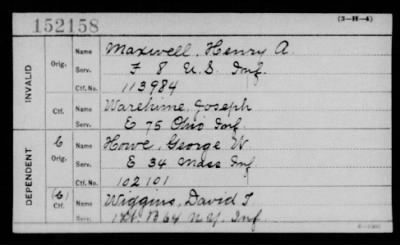 152158
(3-H-4)
INVALID
Orig.
Name Maxwell, Henry A.
Serv. F 8 U.S. Inf.
Ctf. No. 113984
Ctf.
Name Warehime, Joseph
Serv. E 75 Ohio Inf.
DEPENDENT
C Orig.
Name Howe, George W
Serv. E 34 Mass Inf
Ctf. No. 102101
(C) Ctf.
Name Wiggins, David T.
Serv. B 64 N.Y. Inf